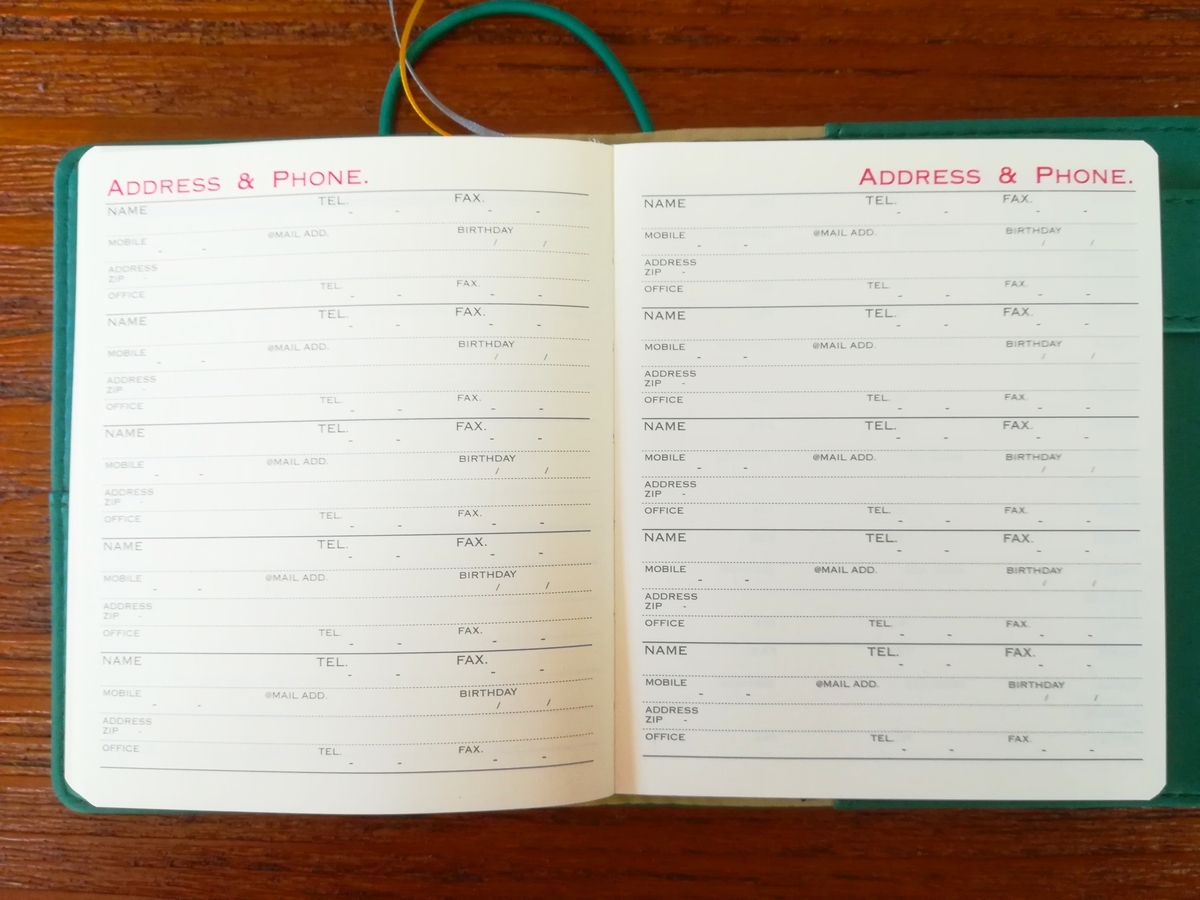 ADDRESS & PHONE.
NAME TEL. - - FAX. - -
MOBILE - - @MAIL ADD. BIRTHDAY / /
ADDRESS
ZIP -
OFFICE TEL. - - FAX. - -
NAME TEL. - - FAX. - -
MOBILE - - @MAIL ADD. BIRTHDAY / /
ADDRESS
ZIP -
OFFICE TEL. - - FAX. - -
NAME TEL. - - FAX. - -
MOBILE - - @MAIL ADD. BIRTHDAY / /
ADDRESS
ZIP -
OFFICE TEL. - - FAX. - -
NAME TEL. - - FAX. - -
MOBILE - - @MAIL ADD. BIRTHDAY / /
ADDRESS
ZIP -
OFFICE TEL. - - FAX. - -
NAME TEL. - - FAX. - -
MOBILE - - @MAIL ADD. BIRTHDAY / /
ADDRESS
ZIP -
OFFICE TEL. - - FAX. - -
ADDRESS & PHONE.
NAME TEL. - - FAX. - -
MOBILE - - @MAIL ADD. BIRTHDAY / /
ADDRESS
ZIP -
OFFICE TEL. - - FAX. - -
NAME TEL. - - FAX. - -
MOBILE - - @MAIL ADD. BIRTHDAY / /
ADDRESS
ZIP -
OFFICE TEL. - - FAX. - -
NAME TEL. - - FAX. - -
MOBILE - - @MAIL ADD. BIRTHDAY / /
ADDRESS
ZIP -
OFFICE TEL. - - FAX. - -
NAME TEL. - - FAX. - -
MOBILE - - @MAIL ADD. BIRTHDAY / /
ADDRESS
ZIP -
OFFICE TEL. - - FAX. - -
NAME TEL. - - FAX. - -
MOBILE - - @MAIL ADD. BIRTHDAY / /
ADDRESS
ZIP -
OFFICE TEL. - - FAX. - -